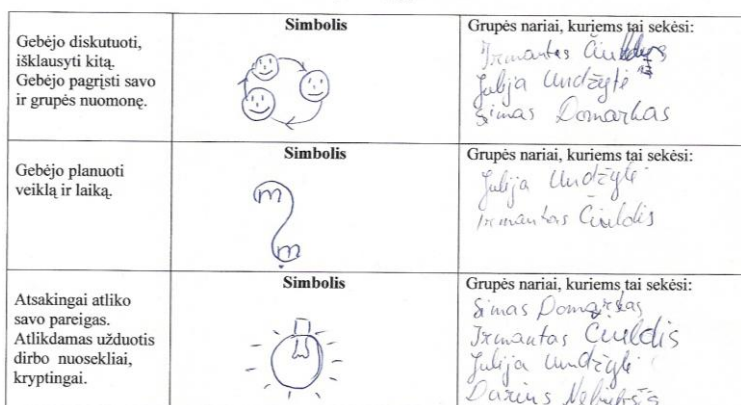 Gebėjo diskutuoti,
išklausyti kitą.
Gebėjo pagrįsti savo
ir grupės nuomonę.
Simbolis
Grupės nariai, kuriems tai sekėsi:
Irmantas
Julija Undžytė
Simas Domarkas
Gebėjo planuoti
veiklą ir laiką.
Simbolis
m
m
Grupės nariai, kuriems tai sekėsi:
Julija Undžytė
Irmantas Čiuldis
Atsakingai atliko
savo pareigas.
Atlikdamas užduotis
dirbo nuosekliai,
kryptingai.
Simbolis
Grupės nariai, kuriems tai sekėsi:
Simas Domarkas
Irmantas Čiuldis
Julija Undžytė
Darius